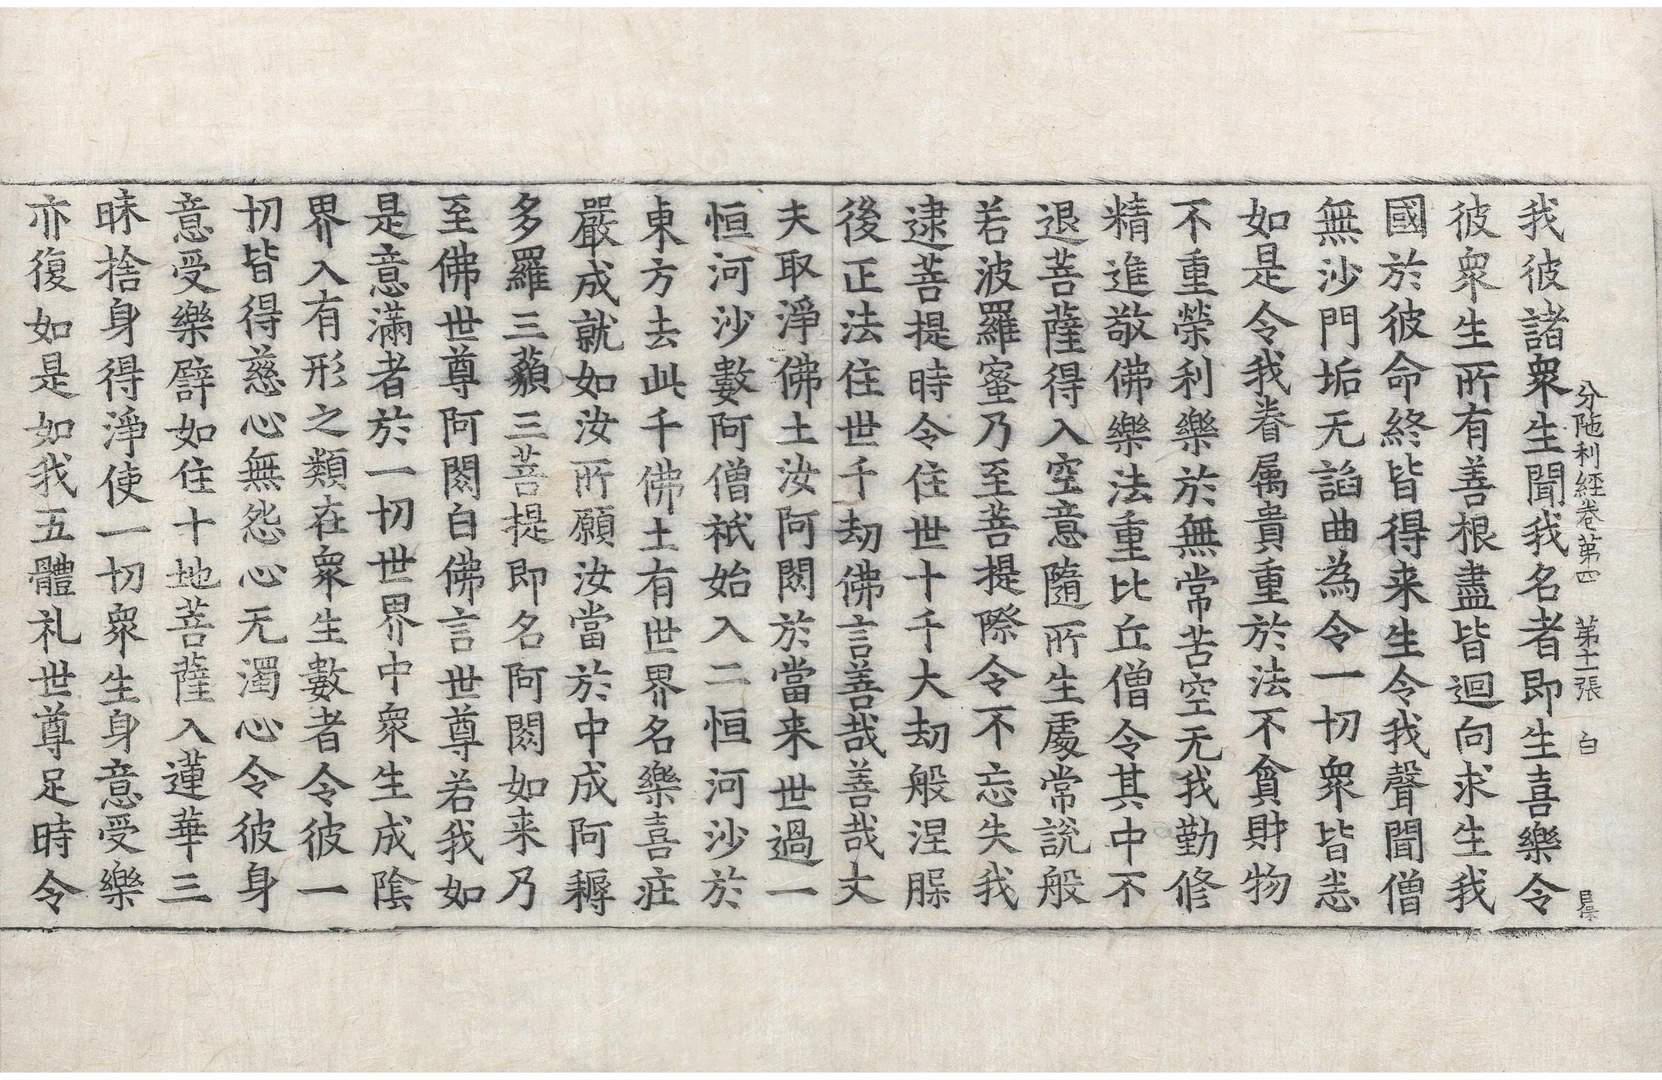 分陁利經卷第四　第十一張　白
我彼諸衆生聞我名者即生喜樂令
彼衆生所有善根盡皆迴向求生我
國於彼命終皆得来生令我聲聞僧
無沙門垢无諂曲為令一切衆皆悉
如是令我眷属貴重於法不貪財物
不重榮利樂於無常苦空无我勤修
精進敬佛樂法重比丘僧令其中不
退菩薩得入空意隨所生處常說般
若波羅蜜乃至菩提際令不忘失我
逮菩提時令住世十千大劫般涅槃
後正法住世千劫佛言善哉善哉丈
夫取淨佛土汝阿閦於當来世過一
恒河沙數阿僧祇始入二恒河沙於
東方去此千佛土有世界名樂喜莊
嚴成就如汝所願汝當於中成阿耨
多羅三藐三菩提即名阿閦如来乃
至佛世尊阿閦白佛言世尊若我如
是意滿者於一切世界中衆生成陰
界入有形之類在衆生數者令彼一
切皆得慈心無怨心无濁心令彼身
意受樂譬如住十地菩薩入蓮華三
昧捨身得淨使一切衆生身意受樂
亦復如是如我五體礼世尊足時令